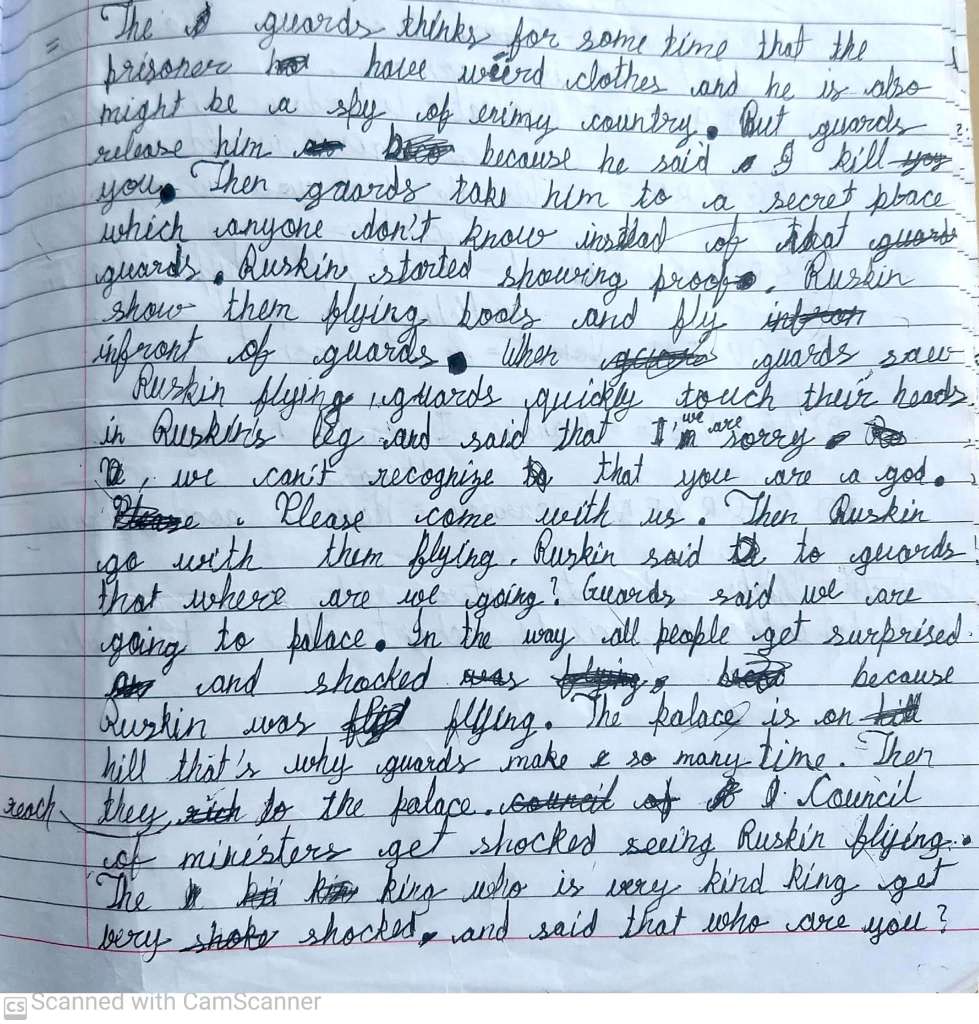 = The guards thinks for some time that the
prisoner have weird clothes and he is also
might be a spy of enimy country. But guards
release him because he said I kill
you. Then guards take him to a secret place
which anyone don't know instead of that
guards. Ruskin started showing proof. Ruskin
show them flying boots and fly
infront of guards. When guards saw
Ruskin flying, guards quickly touch their heads
in Ruskin's leg and said that we are sorry
, we can't recognize that you are a god.
. Please come with us. Then Ruskin
go with them flying. Ruskin said to guards
that where are we going? Guards said we are
going to palace. In the way all people get surprised
and shocked because
Ruskin was flying. The palace is on
hill that's why guards make so many time. Then
they reach the palace. Council
of ministers get shocked seeing Ruskin flying.
The king who is very kind king get
very shocked, and said that who are you?
CS Scanned with CamScanner